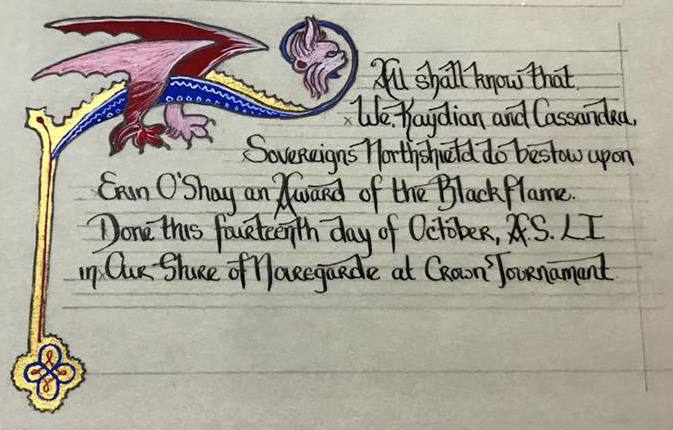 All shall know that
We, Kaydian and Cassandra,
Sovereigns Northshield do bestow upon
Erin O'Shay an Award of the Black flame.
Done this fourteenth day of October, A.S. LI
in Our Shire of Noregarde at Crown Tournament